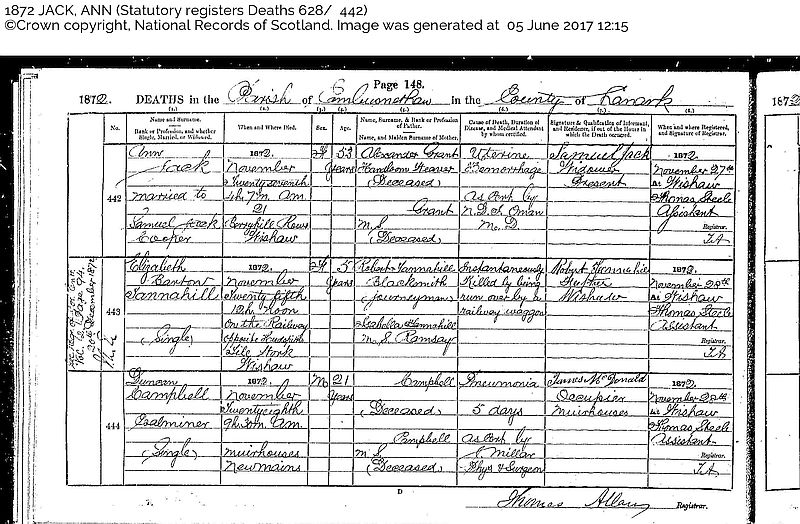 1872 JACK, ANN (Statutory registers Deaths 628/ 442)
©Crown copyright, National Records of Scotland. Image was generated at 05 June 2017 12:15
Page 148.
1872. DEATHS in the Parish of Cambusnethan in the County of Lanark
(1.) (2.) (3.) (4.) (5.) (6.) (7.) (8.)
No.
Name and Surname.
Rank or Profession, and whether Single, Married, or Widowed.
When and Where Died.
Sex.
Age.
Name, Surname, & Rank or Profession of Father.
Name, and Maiden Surname of Mother.
Cause of Death, Duration of Disease, and Medical Attendant by whom certified.
Signature & Qualification of Informant, and Residence, if out of the House in which the Death occurred.
When and where Registered, and Signature of Registrar.
442
Ann
Jack
married to
Samuel Jack
Cooper
1872.
November
Twenty seventh
4h. 7m. A.M.
21
Berryhill Rows
Wishaw
F
53
Years
Alexander Grant
Handloom Weaver
(Deceased)
Grant
M.S.
(Deceased)
Uterine
Hemorrhage
As Cert. by
M.D.
Samuel Jack
Widower
Present
1872
November 27th
At Wishaw
Thomas Steele
Assistant
Registrar.
T.A.
443
Elizabeth
Barton
Tannahill
(Single)
1872.
November
Twenty fifth
12h. Noon
On the Railway
opposite
Tile Work
Wishaw
F
5
Years
Robert Tannahill
Blacksmith
(Journeyman)
Isabella Tannahill
M.S. Ramsay
Instantaneously
Killed by being
run over by a
railway waggon
Robert Tannahill
Father
Wishaw
1872.
November 28th
At Wishaw
Thomas Steele
Assistant
Registrar.
T.A.
Vol. Page 94.
December 1872
444
Duncan
Campbell
Coalminer
(Single)
1872.
November
Twenty eighth
9h. 0m. A.M.
Muirhouses
Newmains
M
21
Years
Campbell
(Deceased)
Campbell
M.S.
(Deceased)
Pneumonia
5 days
As Cert. by
Millar
Phys & Surgeon
James McDonald
Occupier
Muirhouses
1872.
November 28th
At Wishaw
Thomas Steele
Assistant
Registrar.
T.A.
D
Thomas Allan Registrar.
1872
No.